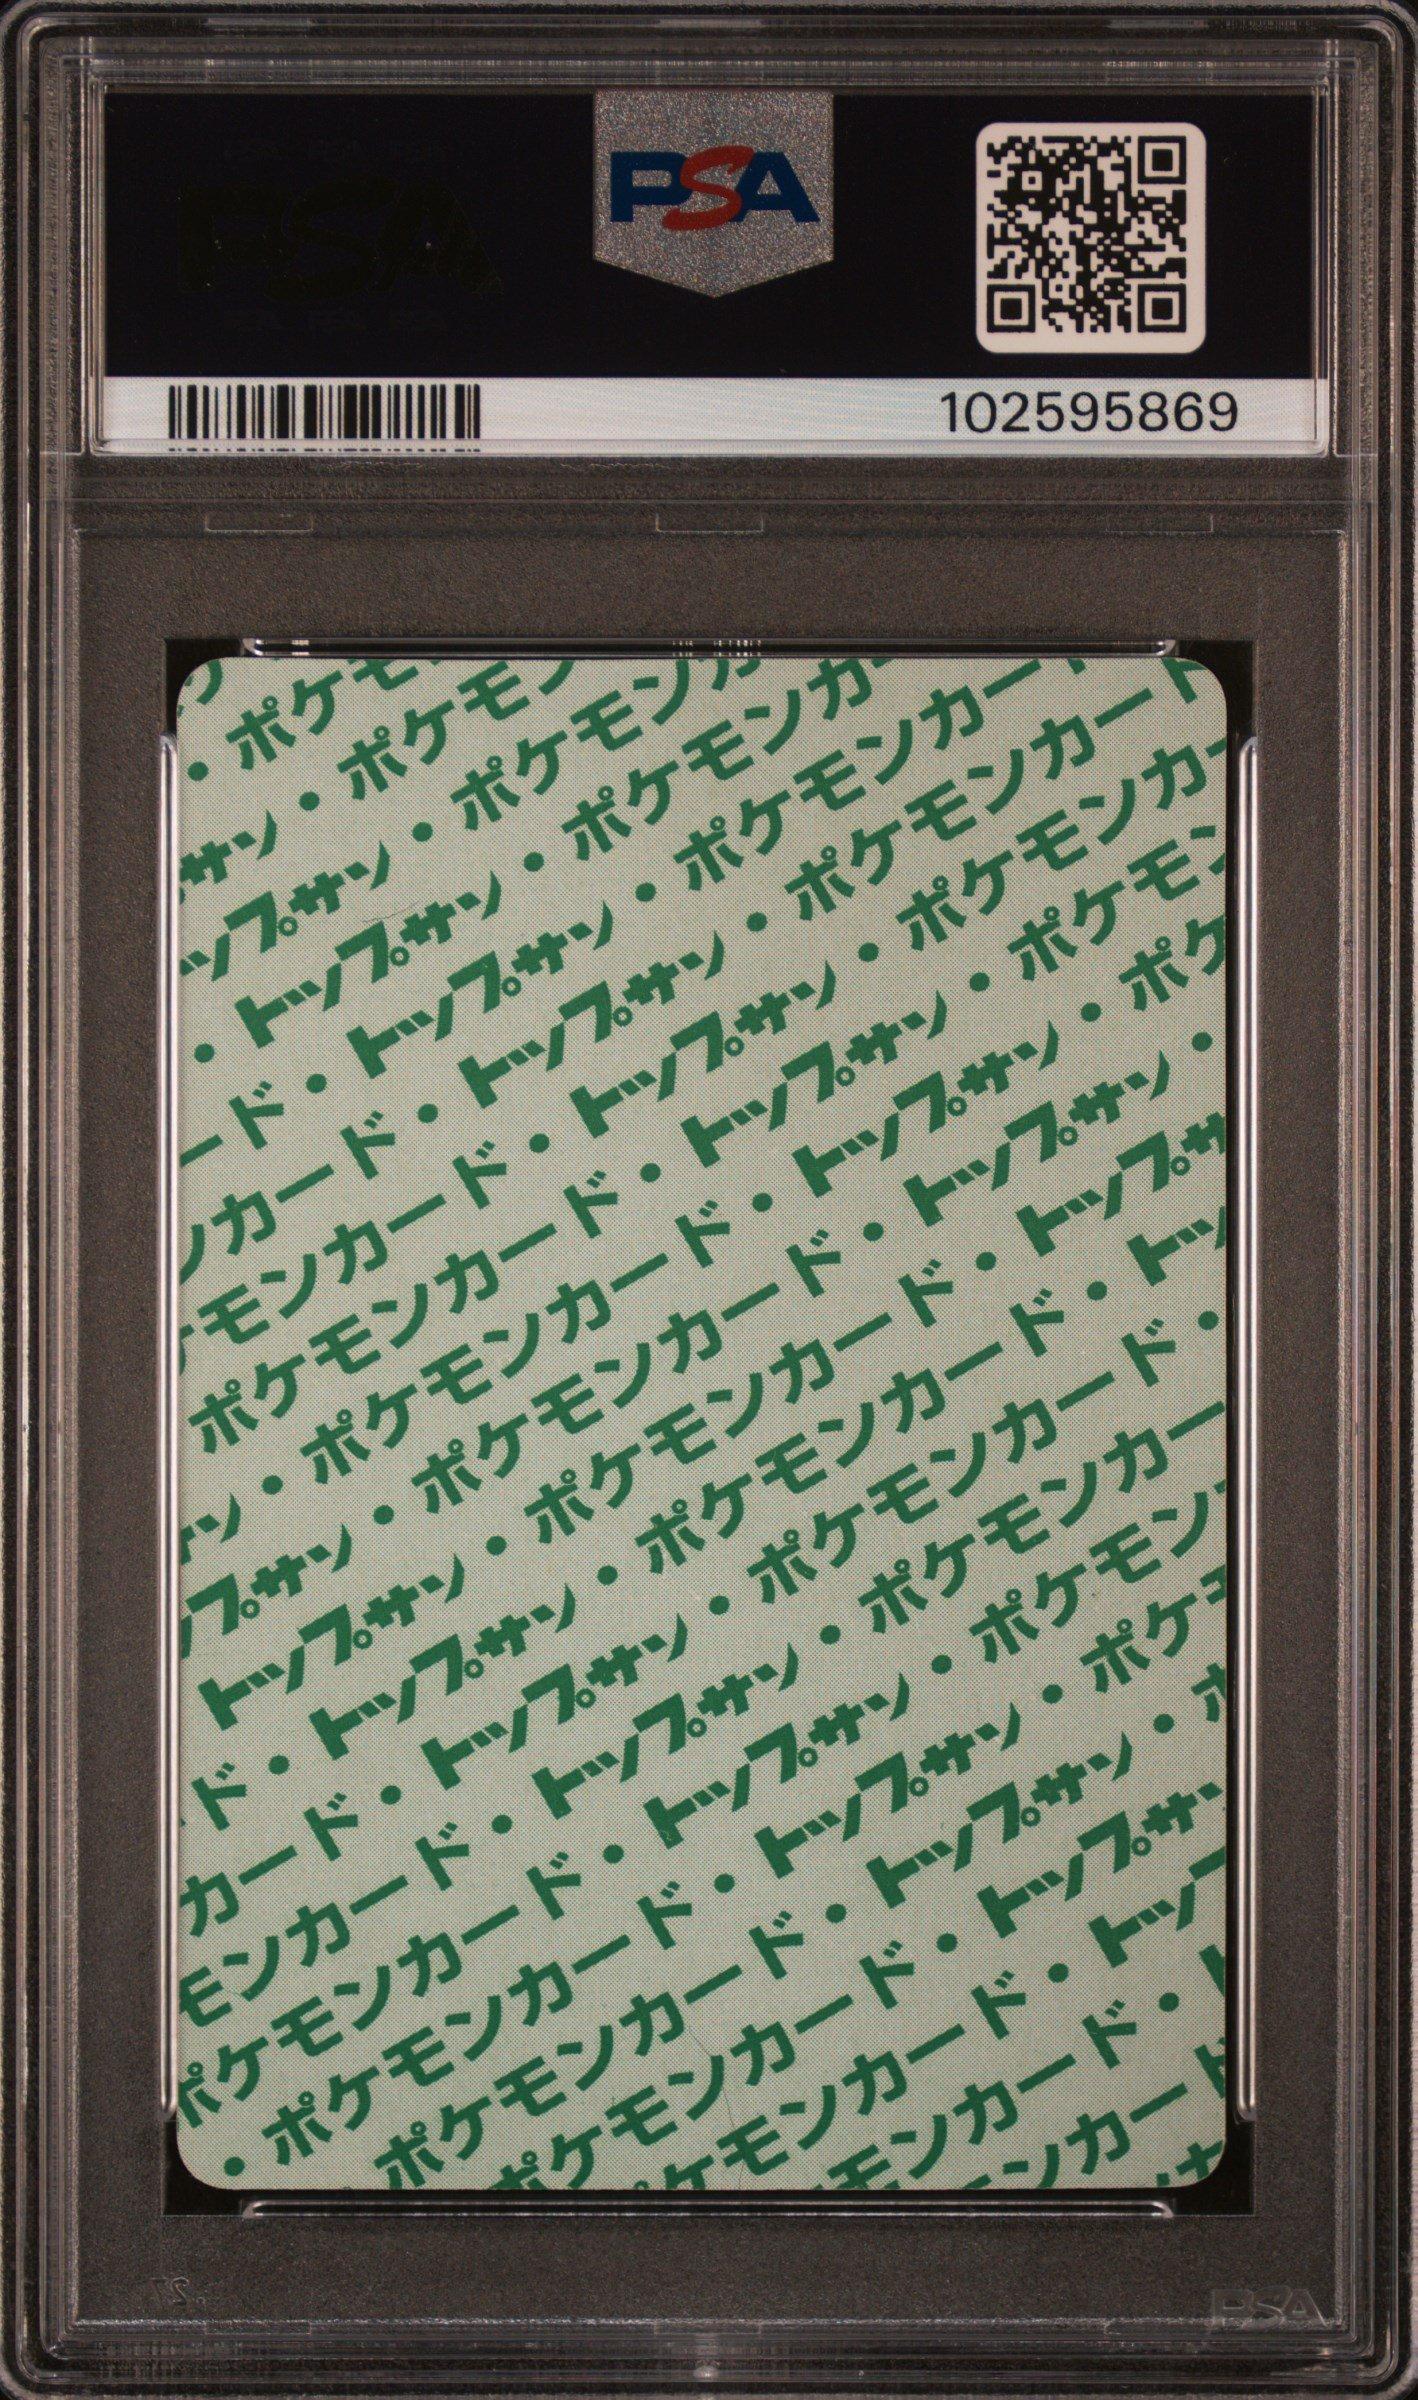 PSA
102595869
・ポケモ
サン・ポケモン
ップサン・ポケモンカ
・トップサン・ポケモンカー
ード・トップサン・ポケモンカード
ンカード・トップサン・ポケモンカード
モンカード・トップサン・ポケモンカ
ポケモンカード・トップサン・ポケモン
ン・ポケモンカード・トップサン・ポケ
プサン・ポケモンカード・トップサン・
トップサン・ポケモンカード・トップサ
ド・トップサン・ポケモンカード・トッ
カード・トップサン・ポケモンカード・
モンカード・トップサン・ポケモンカー
ポケモンカード・トップサン・ポケモン
・ポケモンカード・トップサン・ポケモ
ポケモンカード・トップサン・ポ
ポケモンカード・トップサ
ケモンカード・トップ
モンカード・ト
ンカード
PSA